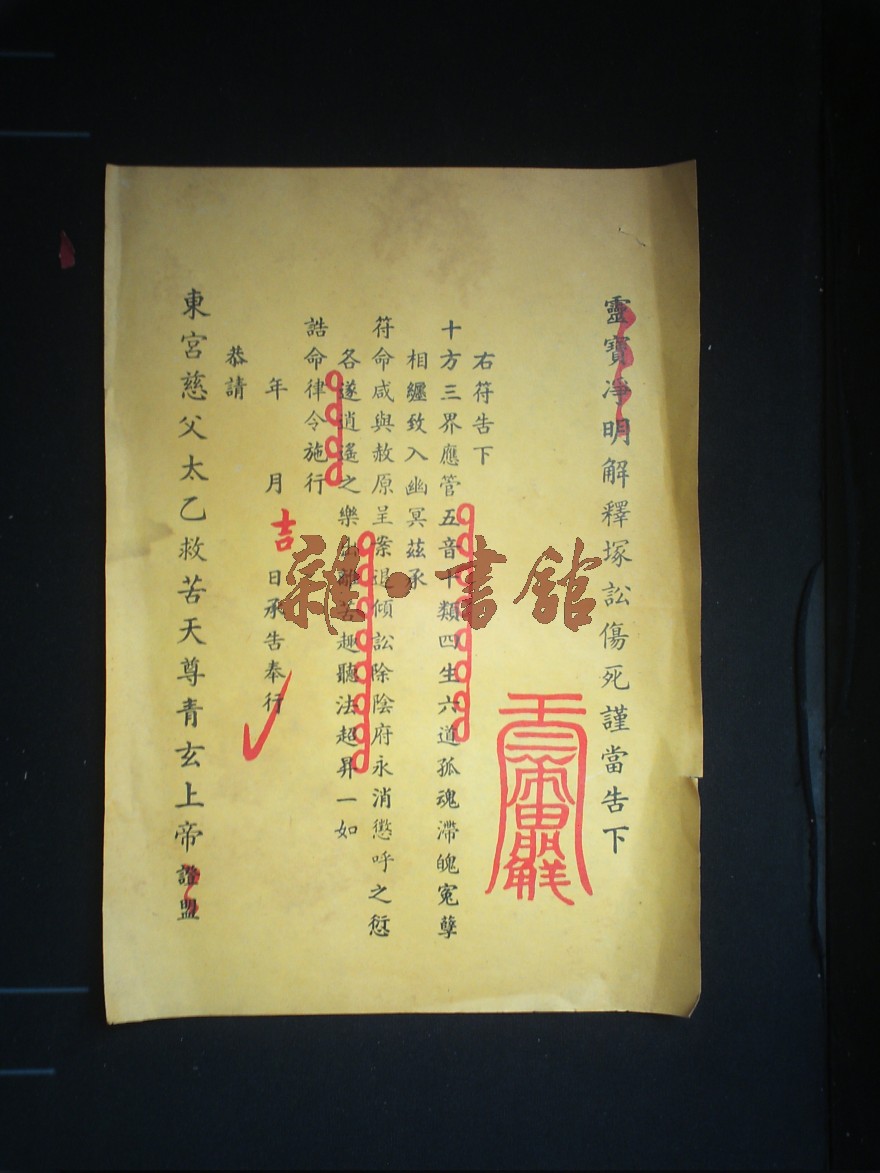 靈寶淨明解釋塚訟傷死謹當告下
右符告下
十方三界應管五音十類四生六道孤魂滯魄寃孽
相纏致入幽冥茲承
符命咸與赦原呈案退傾訟除陰府永消愆呼之愆
各遂逍遙之樂出離苦趣聽法超昇一如
誥命律令施行
年 月 吉 日承告奉行
恭請
東宮慈父太乙救苦天尊青玄上帝 證盟
雜·書館